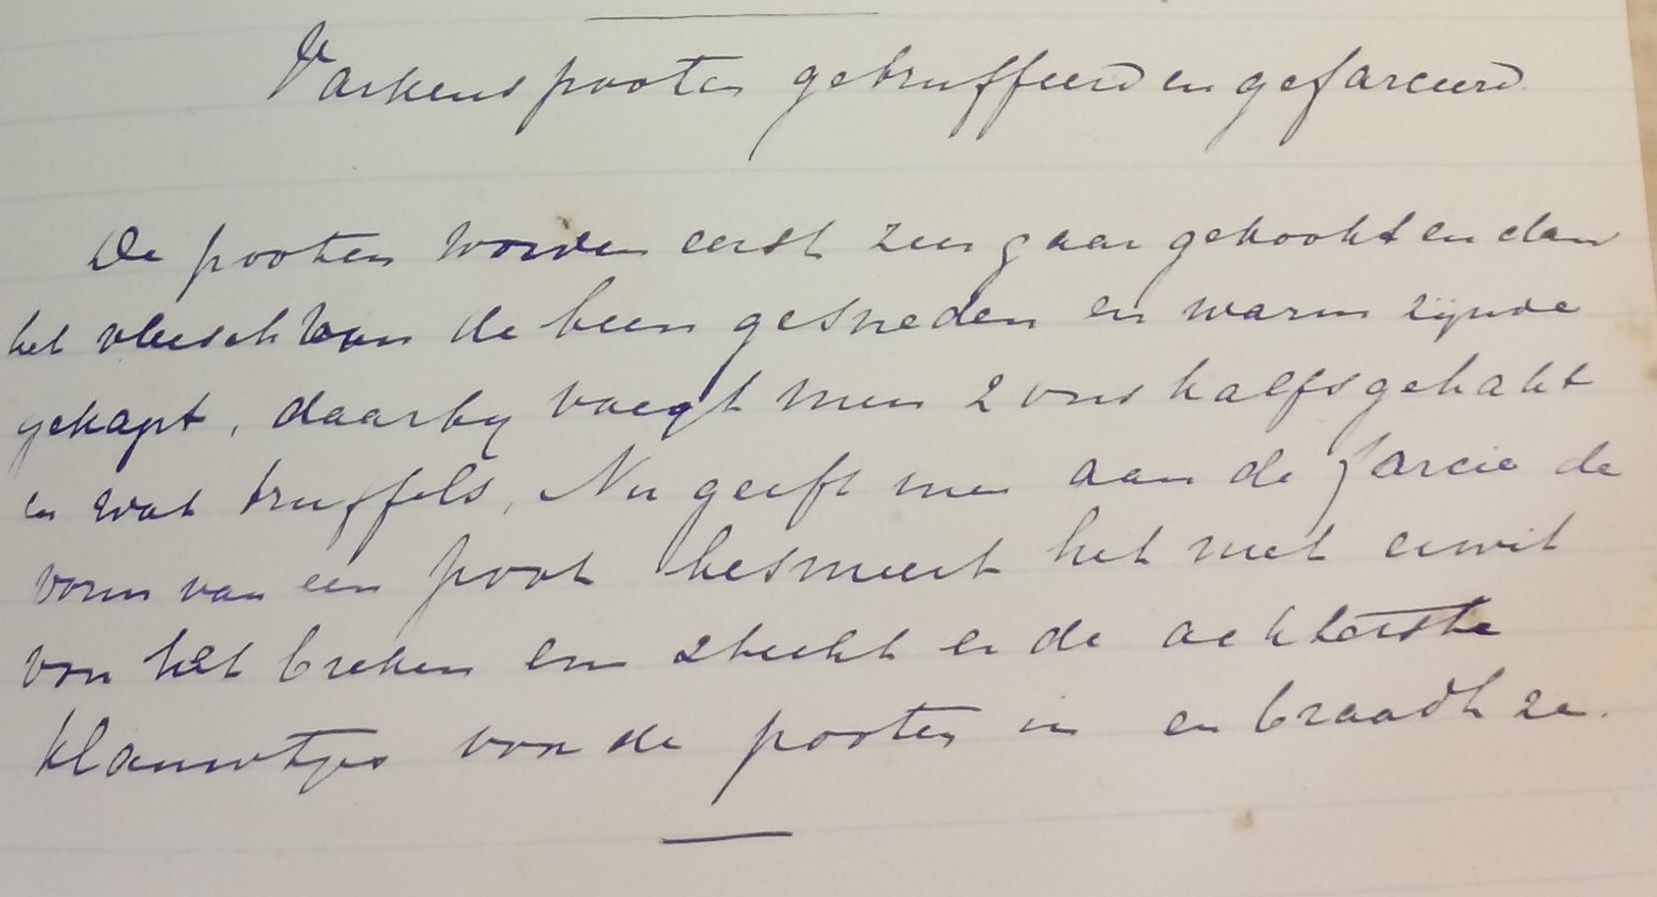 Varkenspooten getruffeerd en gefarceerd.
De pooten worden eerst zeer gaar gekookt en dan
het vleesch van de been gesneden en warm zijnde
gekapt, daarby voegt men 2 ons kalfsgehakt
en wat truffels, Nu geeft men aan de farcie de
vorm van een poot besmeert het met eiwit
von het breken en steekt er de achterste
klauwtjes von de pooten in en braadt ze.